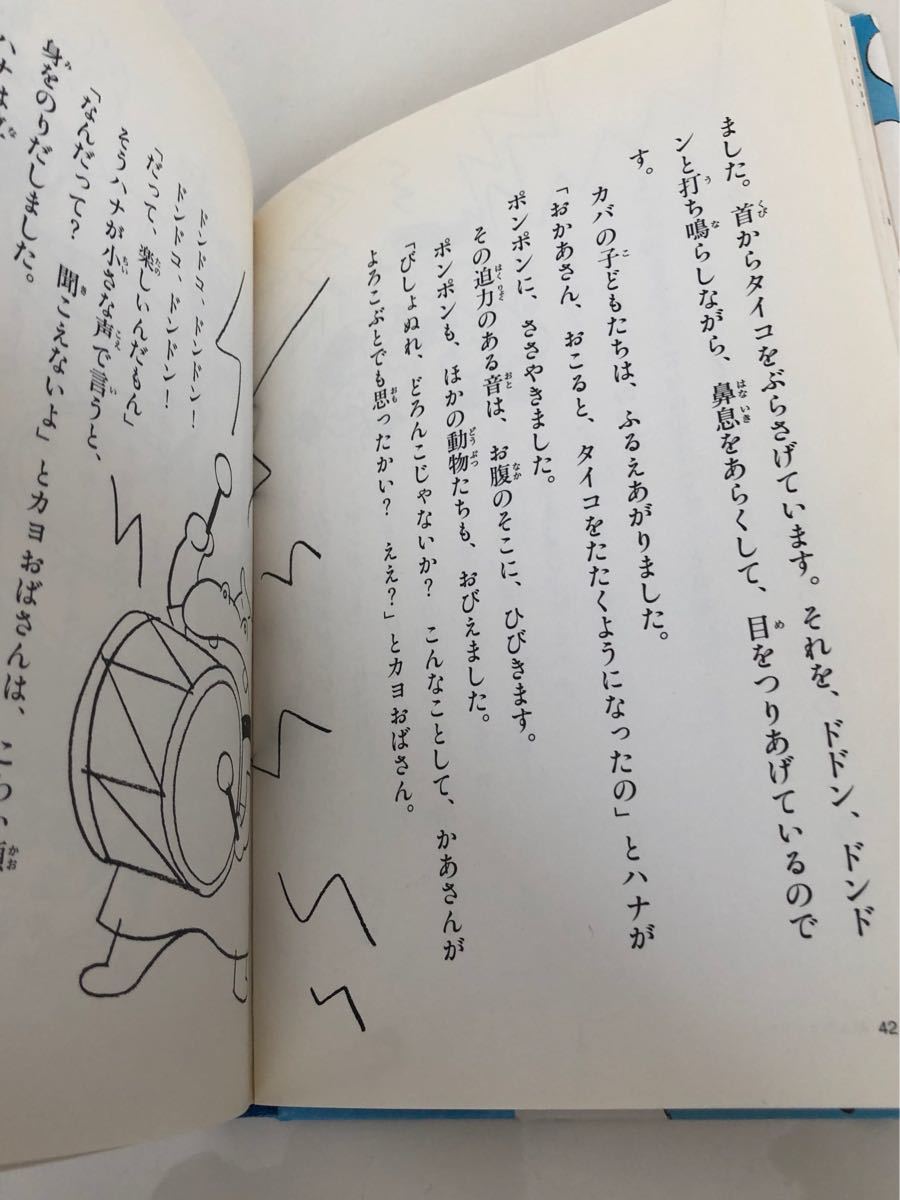 ました。首からタイコをぶらさげています。それを、ドドン、ドンド
ンと打ち鳴らしながら、鼻息をあらくして、目をつりあげているので
す。
カバの子どもたちは、ふるえあがりました。
「おかあさん、おこると、タイコをたたくようになったの」とハナが
ポンポンに、ささやきました。
その迫力のある音は、お腹のそこに、ひびきます。
ポンポンも、ほかの動物たちも、おびえました。
「びしょぬれ、どろんこじゃないか？　こんなことして、かあさんが
よろこぶとでも思ったかい？　ええ？」とカヨおばさん。
42
ドンドコ、ドンドン！
ドンドコ、ドンドン！
「だって、楽しいんだもん」
そうハナが小さな声で言うと、
「なんだって？　聞こえないよ」とカヨおばさんは、
身をのりだしました。